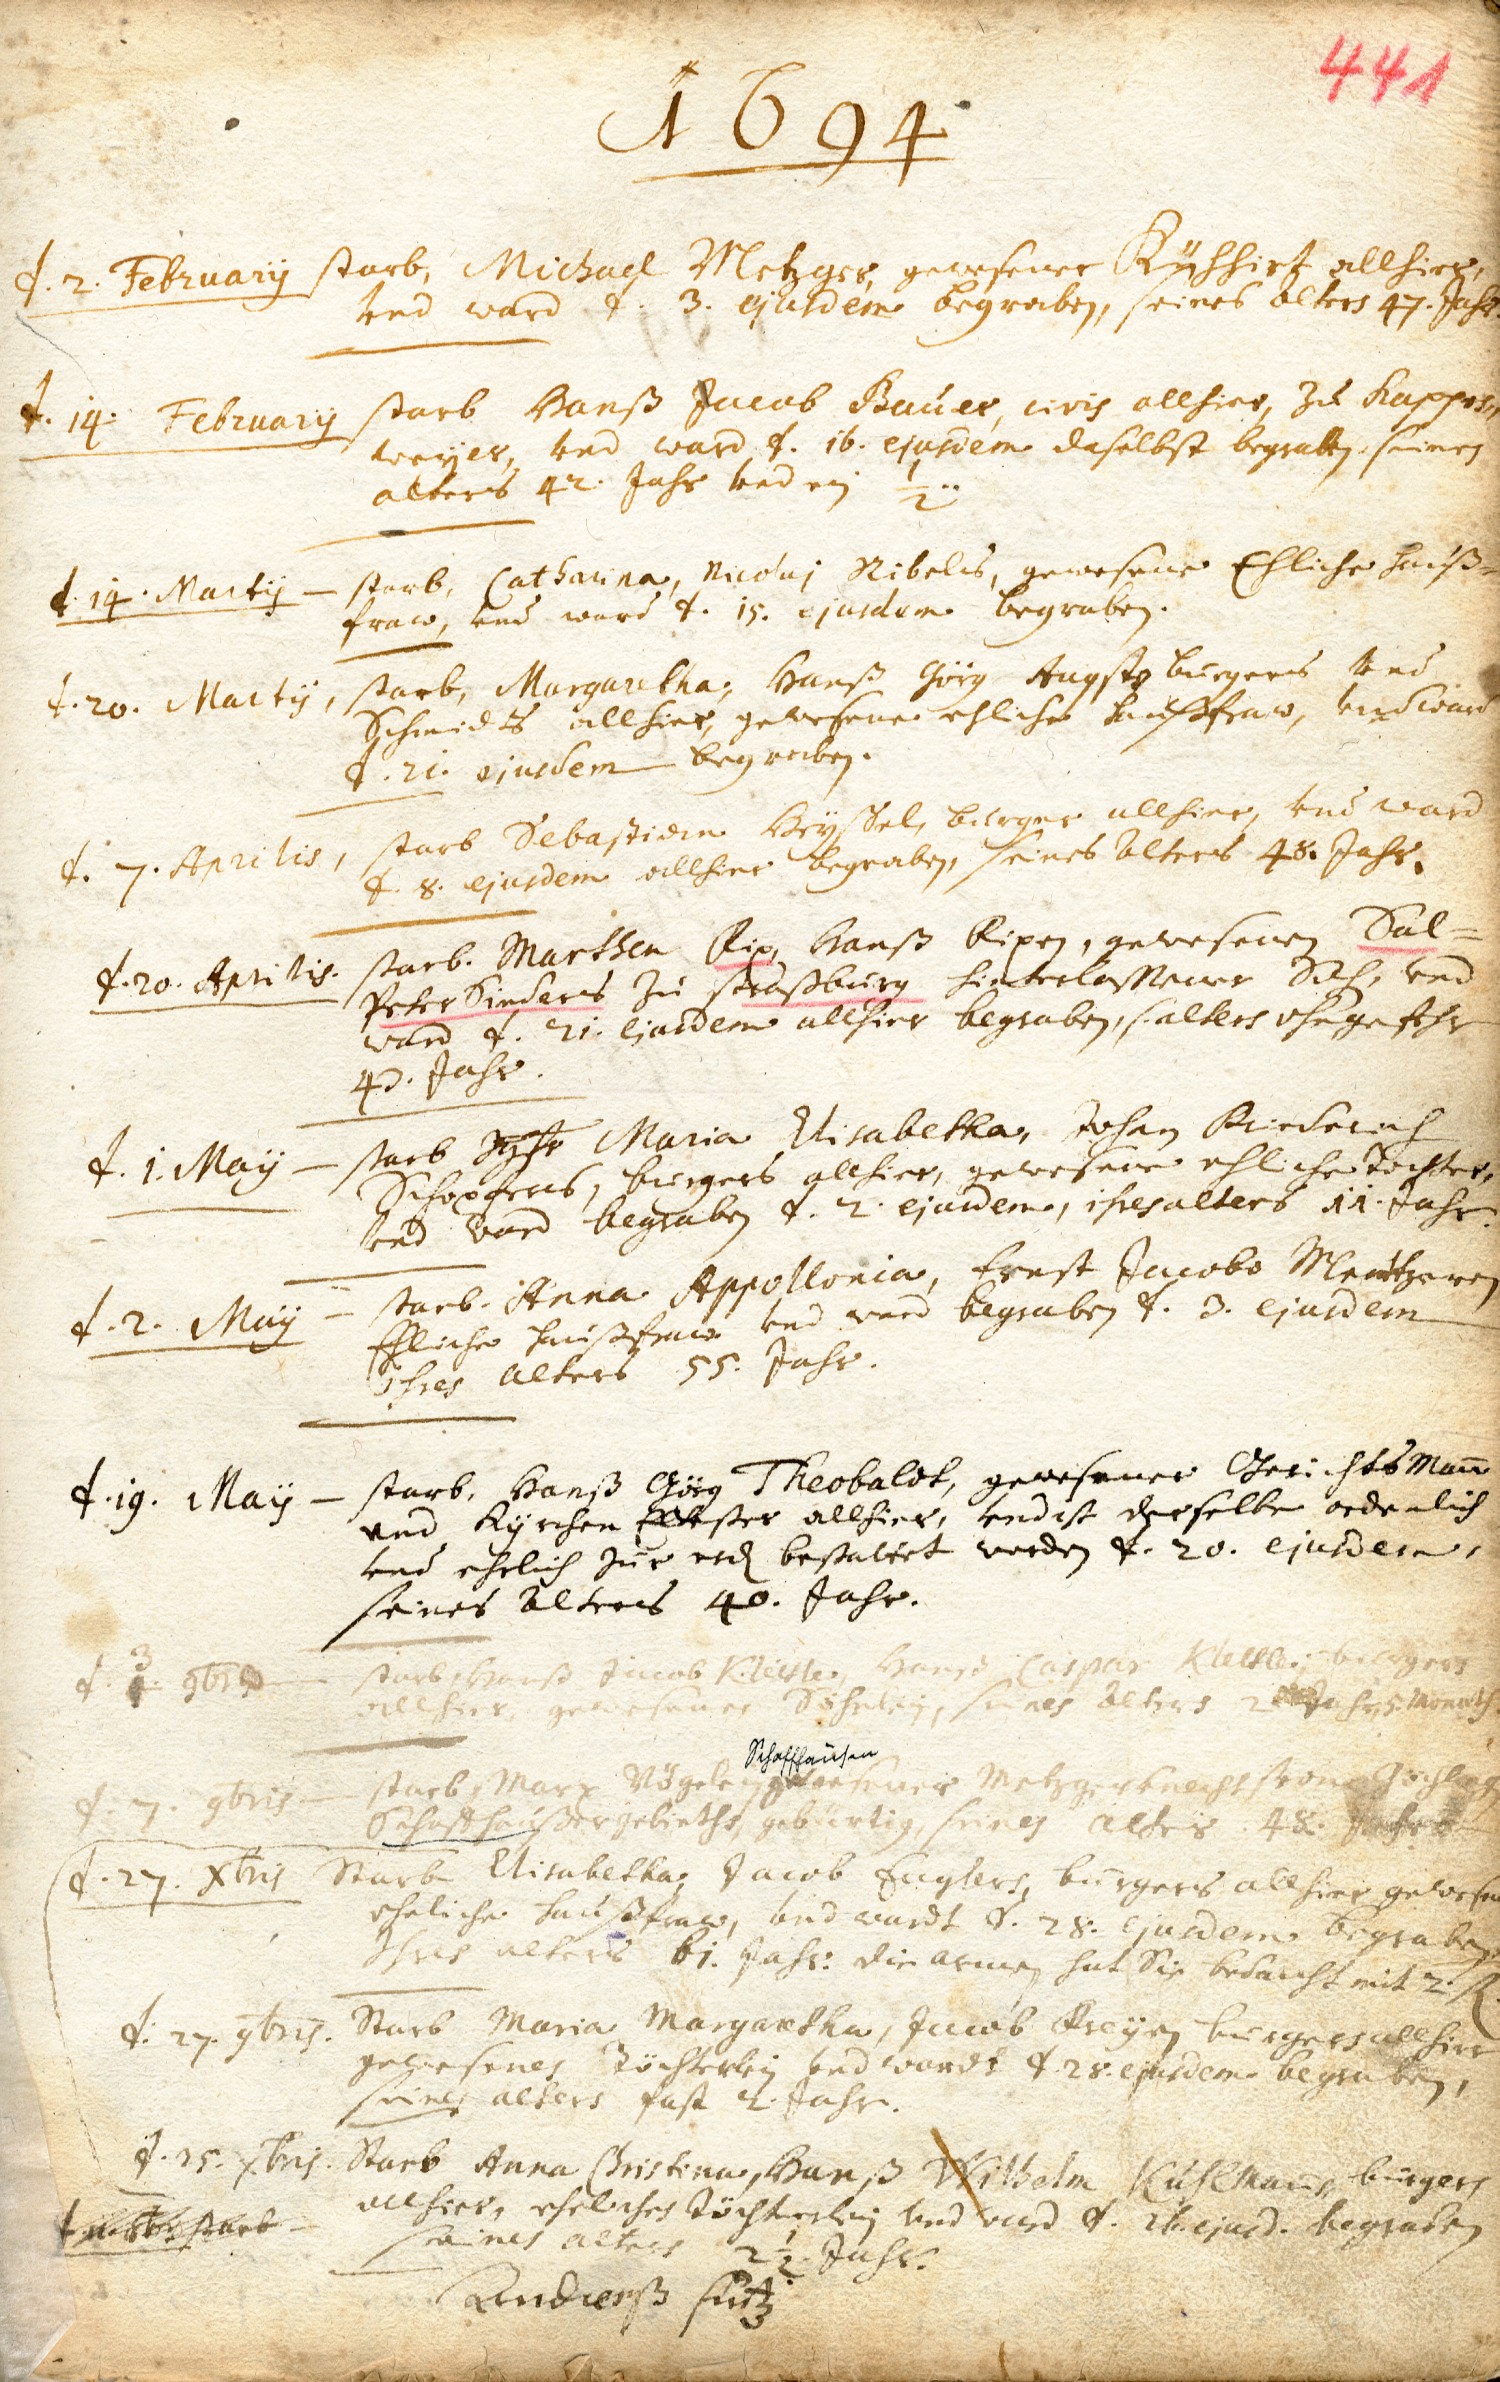 441
1694
d. 2. February starb, Michael Metzger, gewesener Kühhirt allhier,
vnd ward d. 3. ejusdem begraben, seines alters 47. Jahr.
d. 14. February starb Hanß Jacob Bauer, civis allhier, zu Rappers,,
weyer, vnd ward d. 16. ejusdem daselbst begraben, seines
alters 42. Jahr vnd ein 1/2..
d. 14. Martij – starb, Catharina, Nicolaj Nibels, gewesene Ehliche Hauß=
fraw, vnd ward d. 15. ejusdem begraben.
d. 20. Martij, starb, Margaretha, Hanß Görg Augsts burgers vnd
Schmidts allhier, gewesene ehliche haußfraw, vnd ward
d. 21. ejusdem begraben.
d. 7. Aprilis, starb Sebastian Heyssel, burger allhier, vnd ward
d. 8. ejusdem allhier begraben, seines alters 48. Jahr.
d. 20. Aprilis. starb. Marthen Rip, Hanß Ripen, gewesenen Sal=
Petersieders zu straßburg hinterlassener Sohn, vnd
ward d. 21. ejusdem allhier begraben, s. alters ohngefehr
40. Jahr.
d. 1. May – starb Maria Elisabetha, Johan Friederich
Schopfers, burgers allhier, gewesene ehliche Tochter,
vnd ward begraben d. 2. ejusdem, ihres alters 11. Jahr.
d. 2. May – starb. Anna Appollonia, Ernst Jacobs Mentzeren
Ehliche haußfraw vnd ward begraben d. 3. ejusdem
Ihres alters 55. Jahr.
d. 19. May – starb, Hanß Görg Theobaldt, gewesener Gerichts Mann
vnd Kyrchen Eltester allhier, vnd ist derselbe ordenlich
vnd ehrlich zur erd bestattet worden d. 20. ejusdem,
seines alters 40. Jahr.
d. 3 9bris – starb, Hanß Jacob Klettle, Hanß Caspar Kletle, burgers
allhier, gewesener Söhnlein, seines alters 2 Jahr, 5. Monath.
Schaffhausen
d. 7. 9bris – starb, Marx Vögelein, gewesener Metzgerknecht von
Schaffhaußer gebieths, gebürtig, seines alters 48. Jahr
d. 27. Xbris Starb Elisabetha, Jacob Englers, burgers allhier gewesene
eheliche haußfraw, vnd wardt d. 28. ejusdem begraben
Ihres alters 61. Jahr. die armen hat sie bedacht mit 2.
d. 27. 9bris. Starb Maria Margaretha, Jacob Freyen burgers allhier
gewesenes Töchterlein vnd wardt d. 28. ejusdem begraben,
seines alters fast 2. Jahr.
d. 25. Xbris. Starb Anna Christina, Hanß Wilhelm Kuhlmans, burgers
allhier, eheliches Töchterlein vnd ward d. 26. ejusd. begraben
seines alters 2 1/2. Jahr.